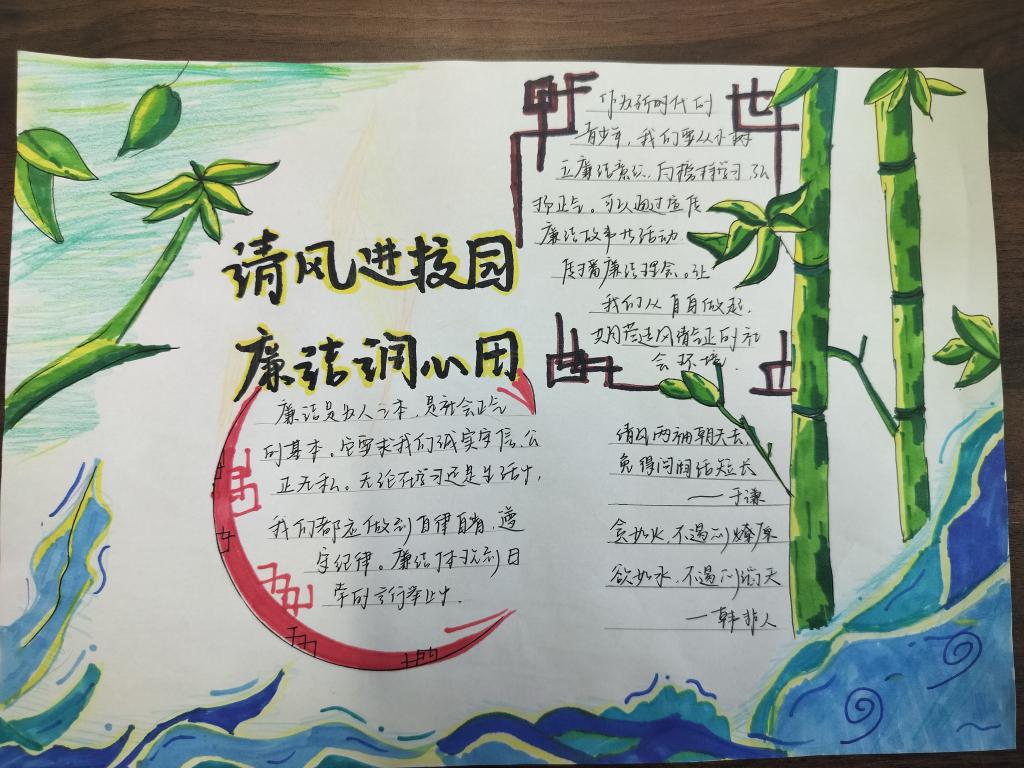 清风进校园
廉洁润心田
廉洁是为人之本，是社会正气
的基本。它要求我们诚实守信、公
正无私。无论在学习还是生活中，
我们都应做到自律自省，遵
守纪律。廉洁体现到日
常的言行举止中.
作为新时代的
青少年，我们要从小树
立廉洁意识，向榜样学习，弘
扬正气。可以通过应展
廉洁故事廿活动
廉洁理念。让
我们从自身做起，
共同营造风清气正的社
会环境.
清风两袖朝天去，
免得闾阎话短长
——于谦
贪如火，不遏则燎原
欲如水，不遏则滔天
——韩非人